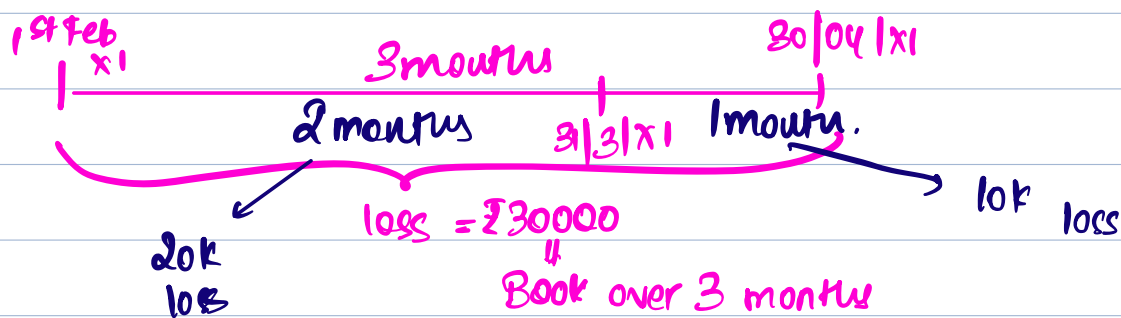 1st Feb
x1
3 months
30/04/x1
2 months
31/3/x1
1 month.
loss = ₹30000
10k loss
20k
loss
Book over 3 months